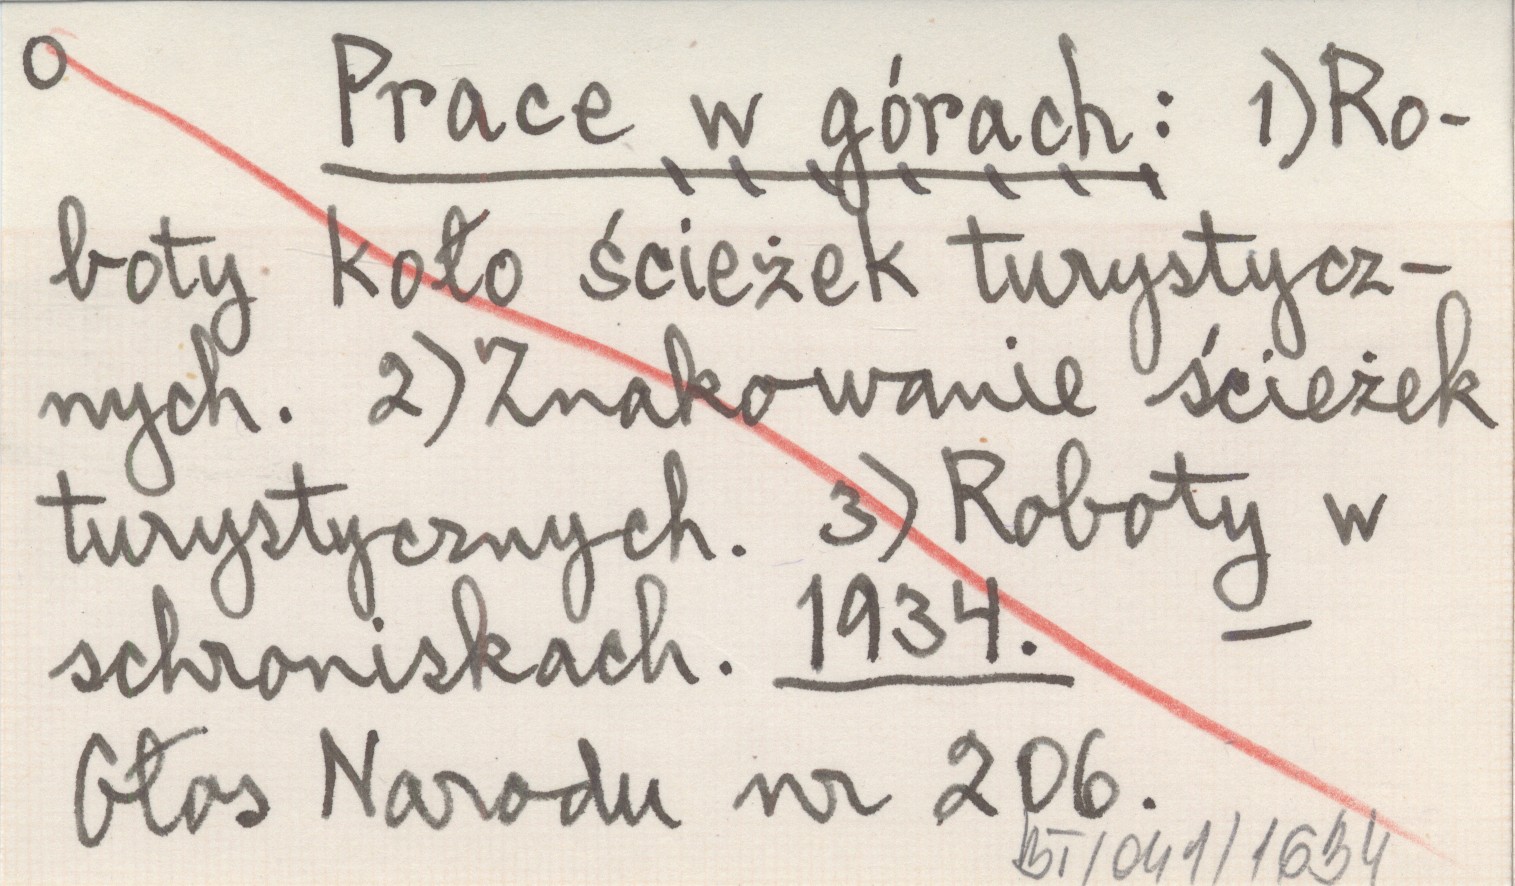 O Prace w górach: 1) Ro-
boty koło ścieżek turystycz-
nych. 2) Znakowanie ścieżek
turystycznych. 3) Roboty w
schroniskach. 1934.
Głos Narodu nr 206.
BT/041/1634